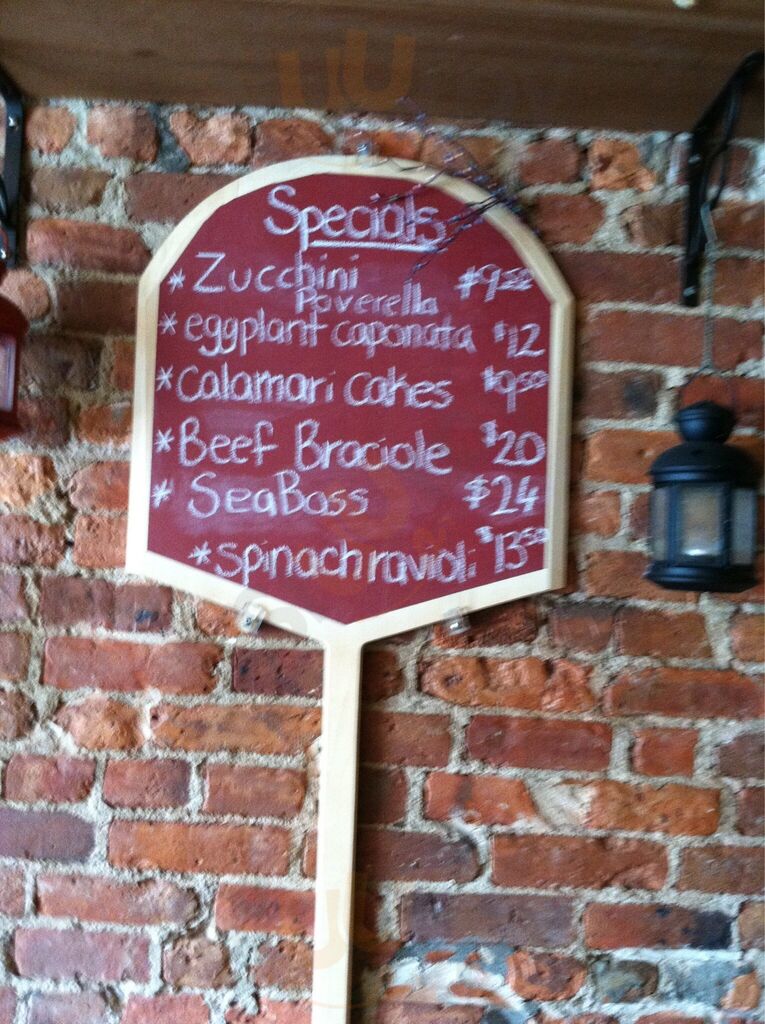 Specials
* Zucchini $9.50
Poverella
* eggplant caponata $12
* Calamari cakes $9.50
* Beef Braciole $20
* Sea Bass $24
* spinach ravioli $13.50